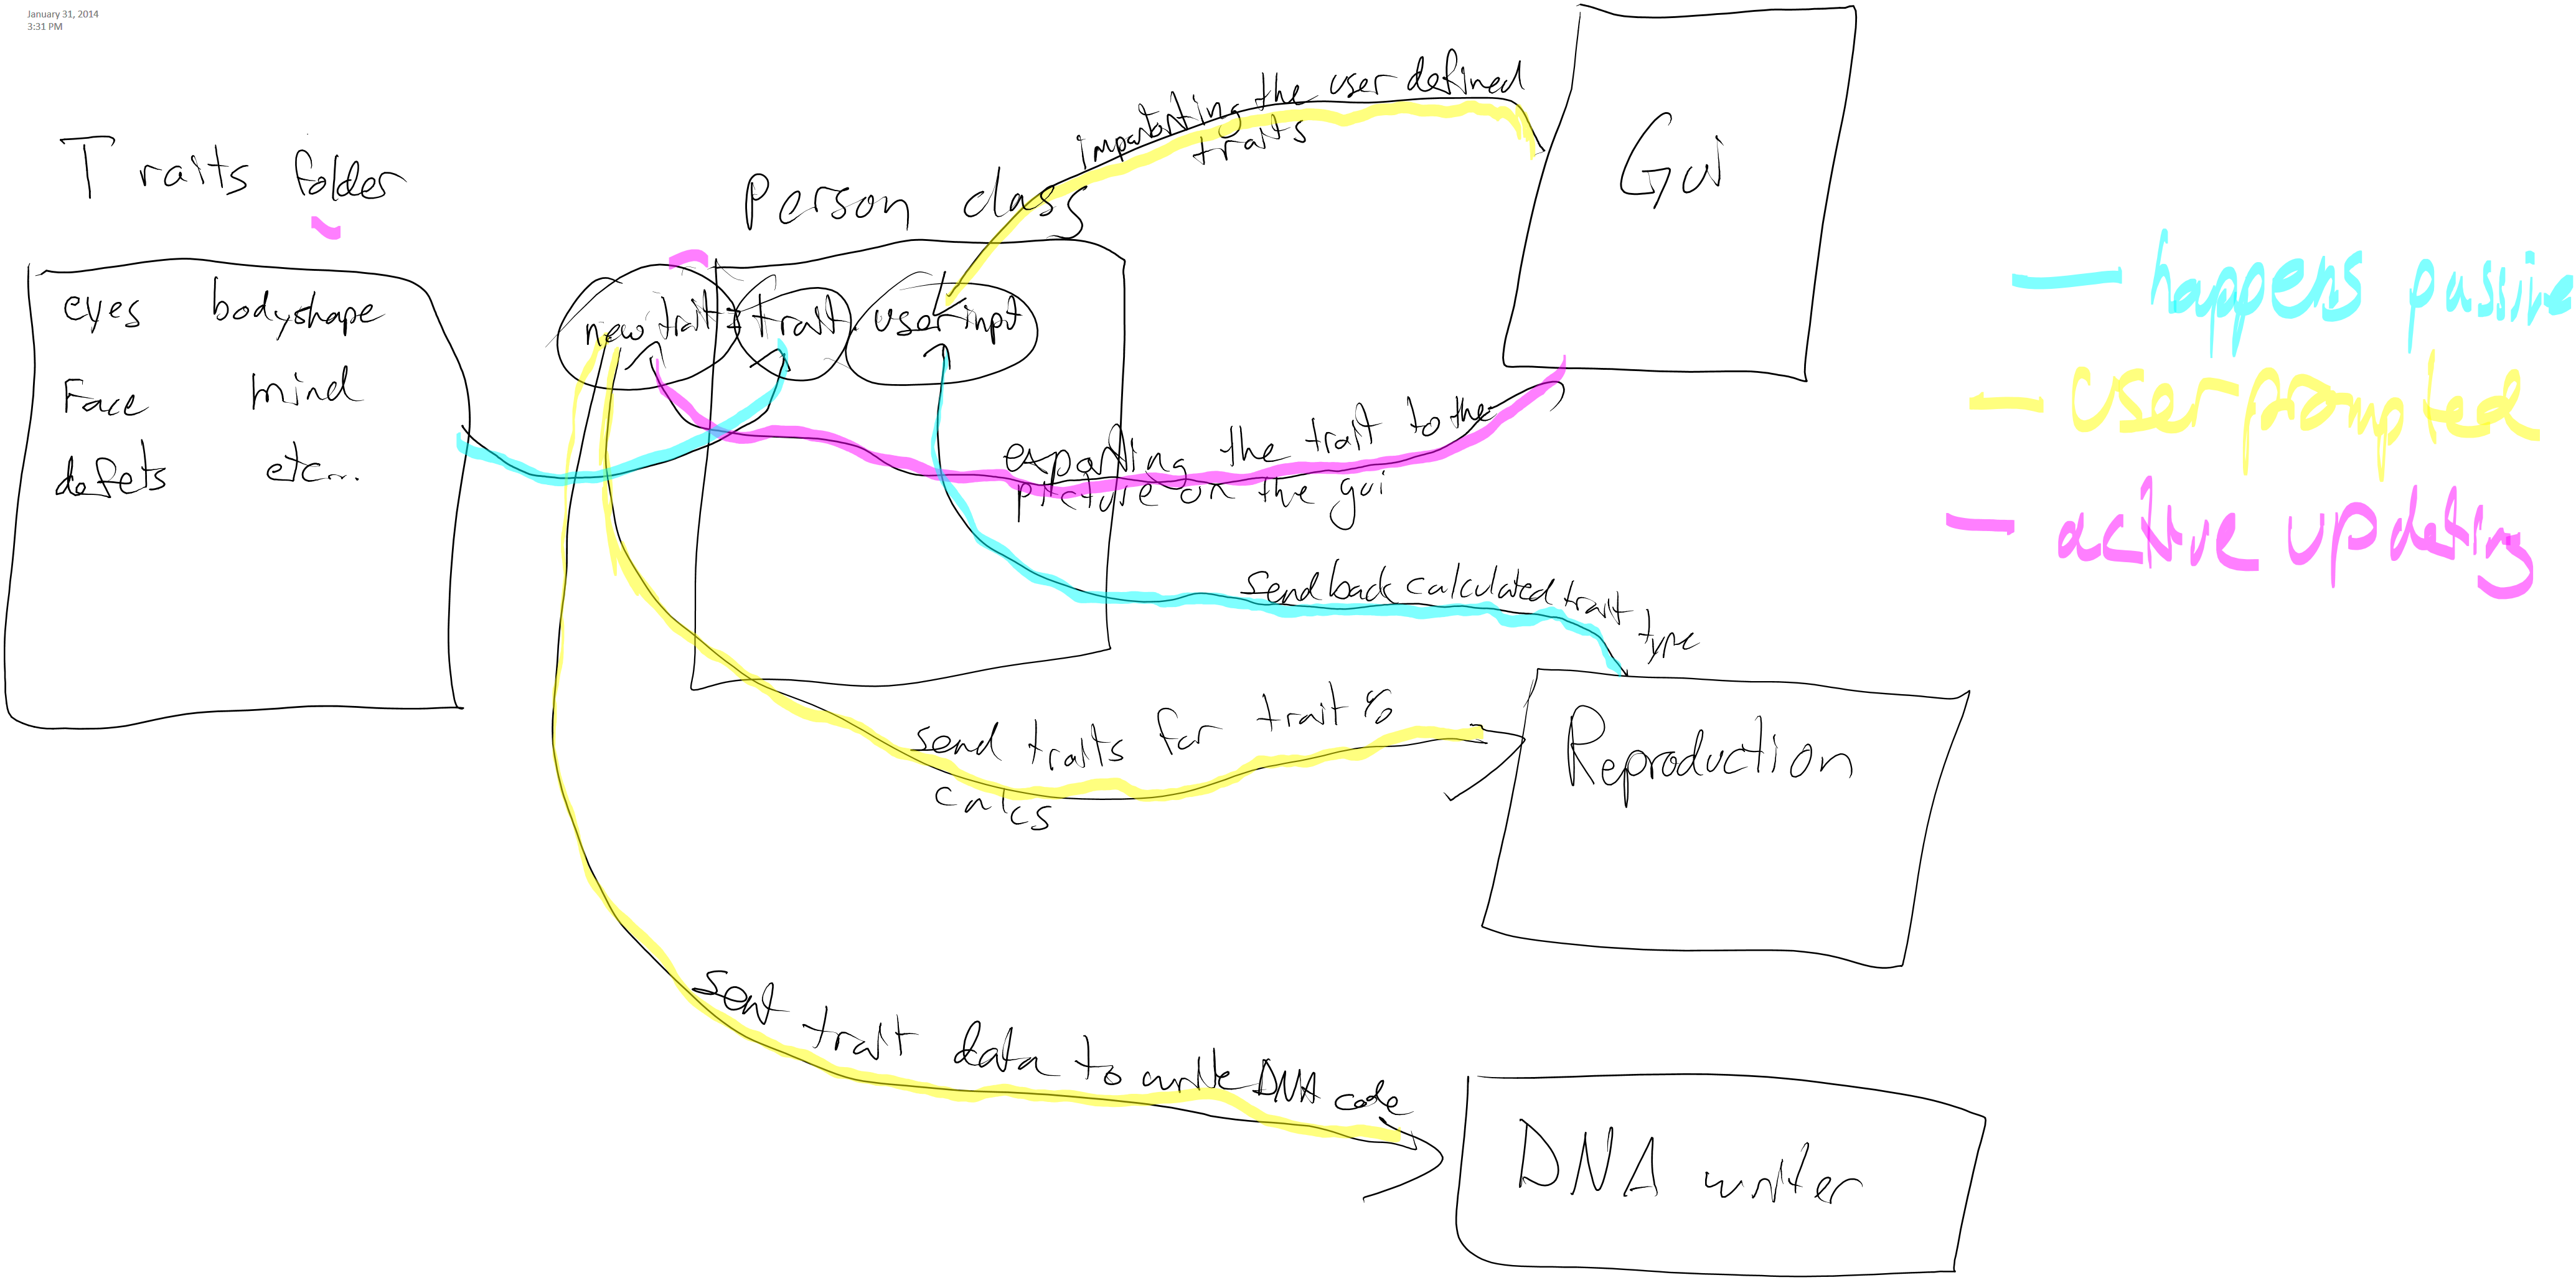 January 31, 2014
3:31 PM
Traits folder
eyes bodyshape
Face mind
defets etc...
Person class
new trait = trait.userinput
importing the user defined
traits
Gui
exporting the trait to the
picture on the gui
send back calculated trait
type
send traits for trait %
calcs
Reproduction
sent trait data to write DNA code
DNA writer
— happens passive
— User prompted
— active updating